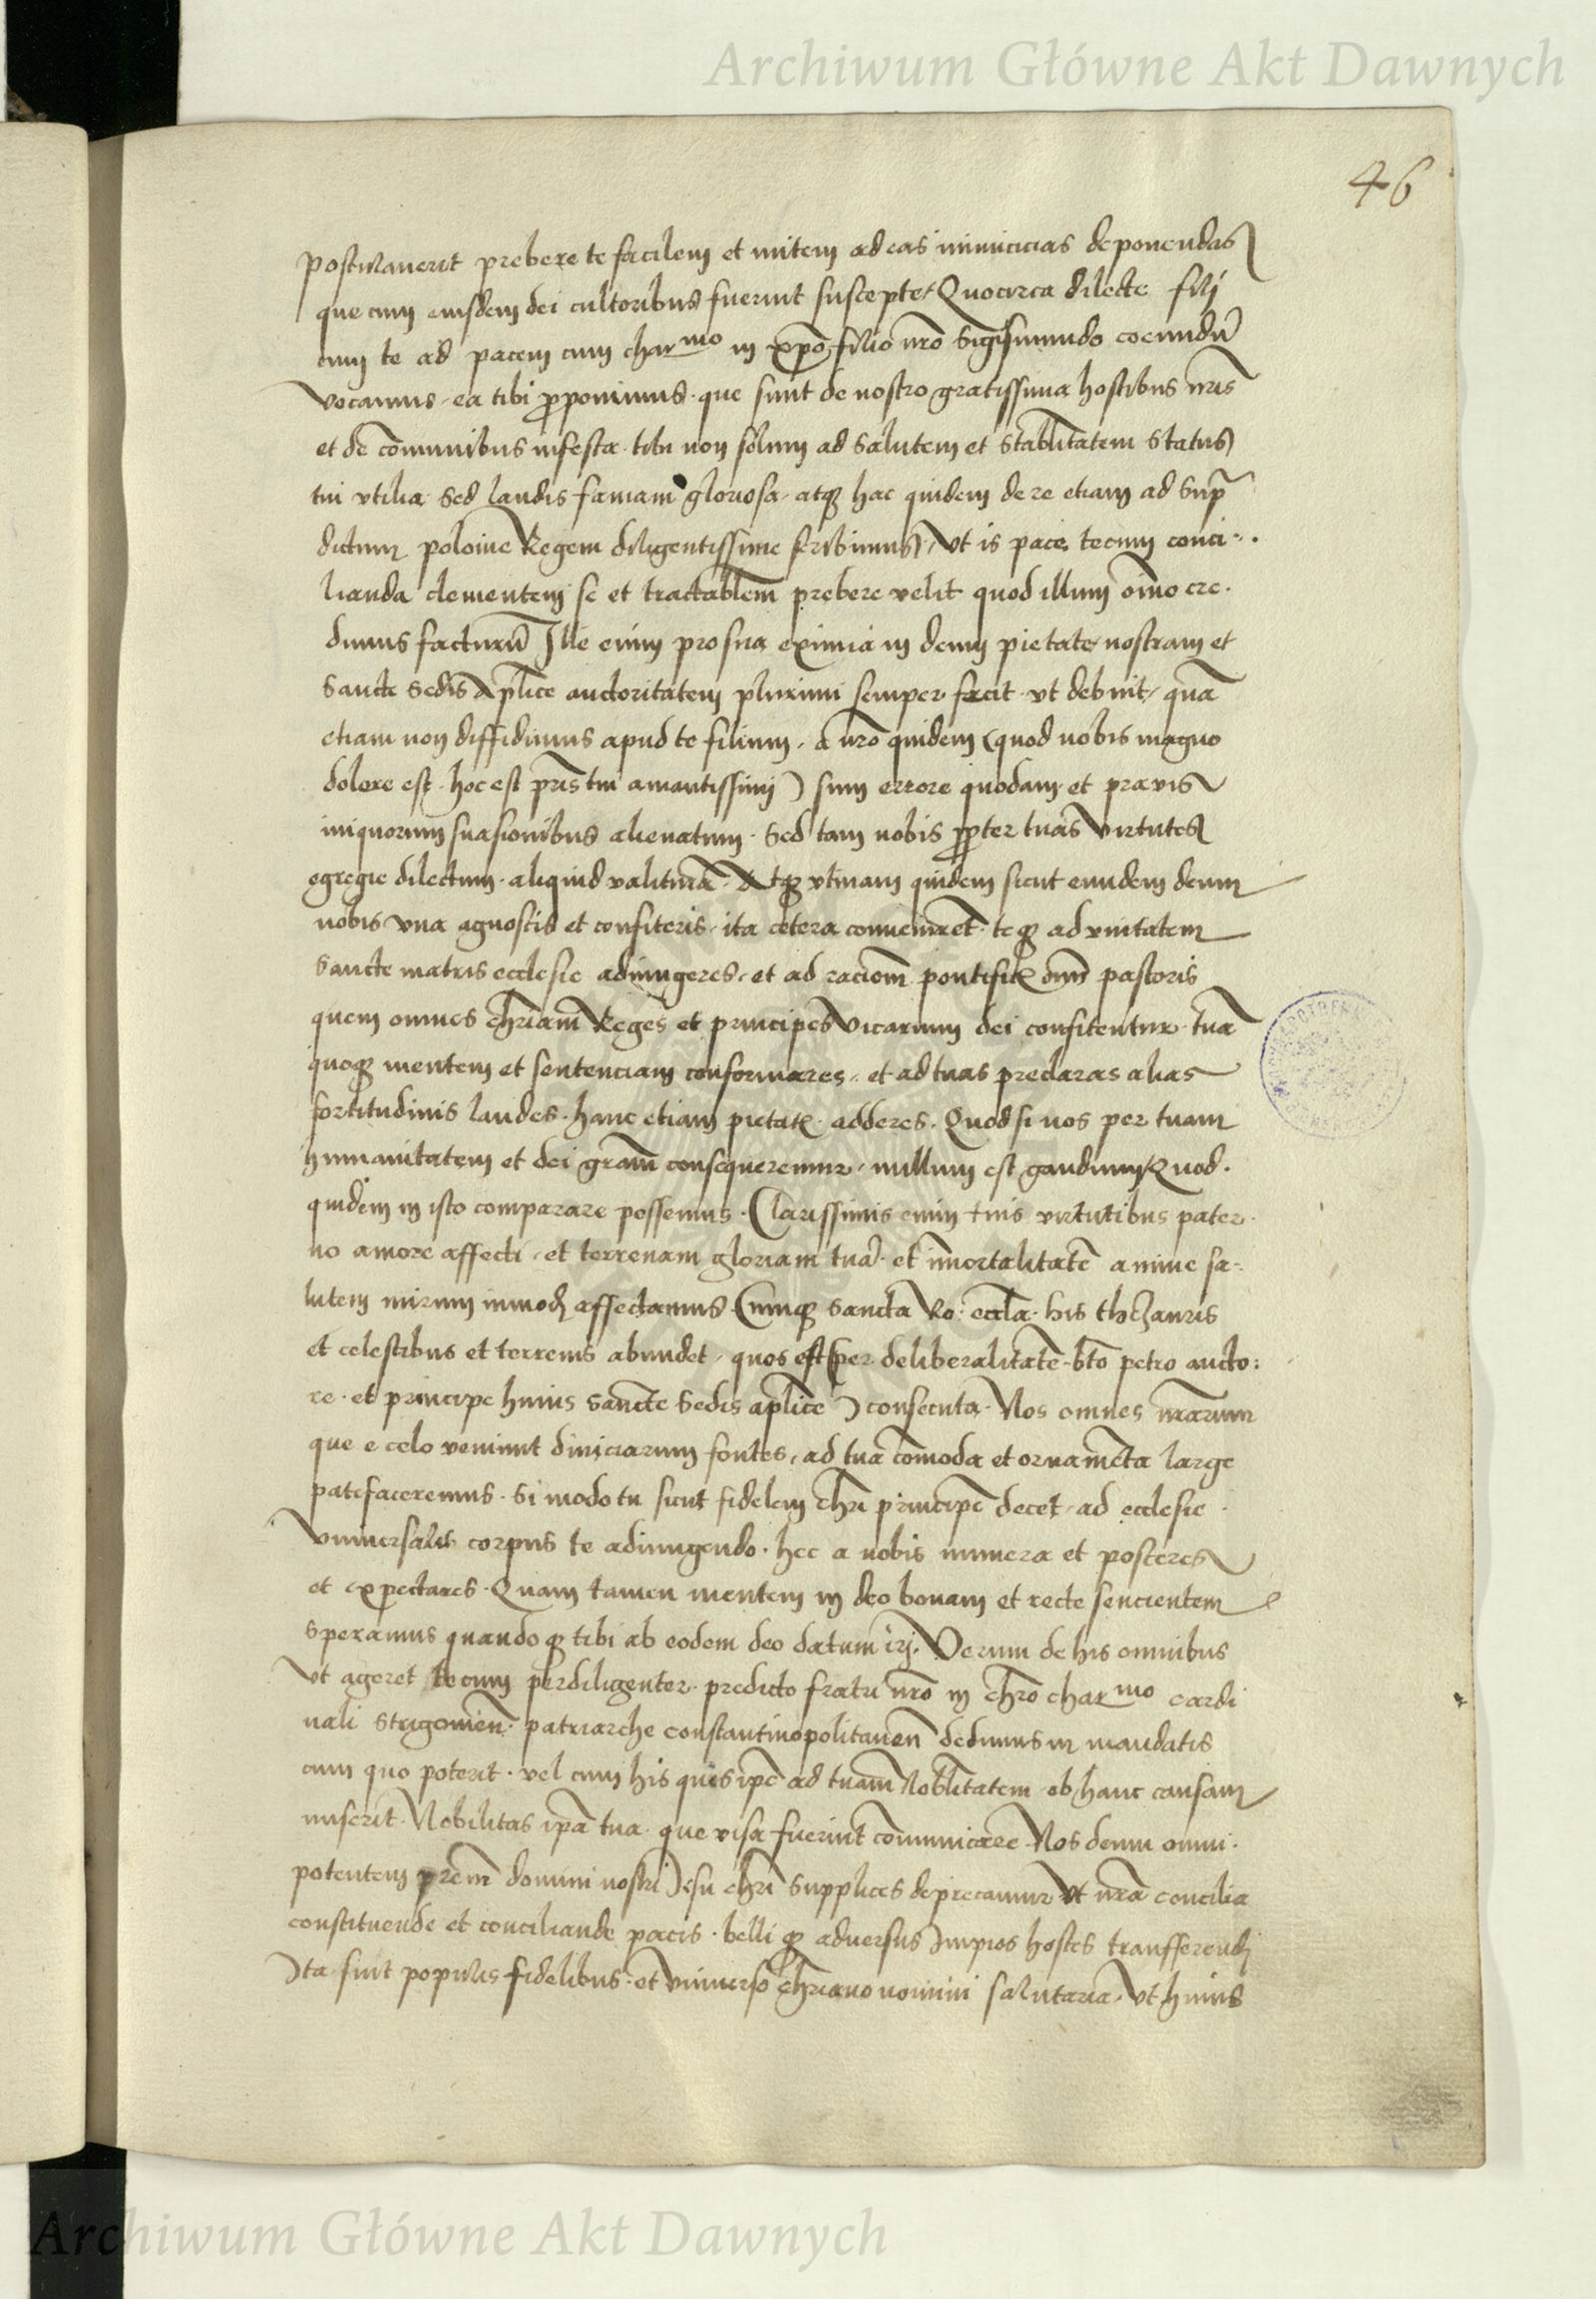 Archiwum Główne Akt Dawnych
46
postulaverit prebere te facilem et mitem ad eas inimicicias deponendas
que cum eiusdem dei cultoribus fuerint suscepte. Quocirca dilecte fili
cum te ad pacem cum charmo in xpo filio nro Sigismundo coeundũ
vocamus. ea tibi proponimus. que sunt de nostro gratissima hostibus nris
et de comunibus infesta. tibi non solum ad salutem et stablitatem status
tui utilia. Sed laudis famam gloriosa. atque hac quidem de re etiam ad supra
dictum polonie Regem diligentissime scribimus, Ut is pace tecum conci..
lianda clementem se et tractablem prebere velit quod illum omno cre.
dimus facturũ Ille enim pro sua eximia in deum pietate nostram et
Sancte Sedis Aplice auctoritatem plurimi semper fecit. ut debuit, quã
etiam non diffidimus apud te filium, a nro quidem (quod nobis magno
dolore est. hoc est pris tui amantissimi) sinu errore quodam et pravis
iniquorum suasionibus alienatum. Sed tam nobis propter tuas virtutes
egregie dilectum. aliquid valiturã. Atque utinam quidem sicut eundem deum
nobis una agnoscis et confiteris, ita cetera convenirēt. teque ad unitatem
Sancte matris ecclesie adiungeres, et ad racionem pontificis omn pastoris
quem omnes chriani Reges et principes Vicarium dei confitentur. tuã
quoque mentem et sentenciam conformares, et ad tuas preclaras alias
fortitudinis laudes. hanc etiam pietatis adderes. Quod si nos per tuam
humanitatem et dei gram consequeremur, nullum est gaudium, Quod.
quidem in isto comparare possemus. Clarissimis enim tuis virtutibus pater.
no amore affecti, et terrenam gloriam tuã. et imortalitatē anime sa-
lutem mirum inmodum affectamus. Cumque sancta Ro: eccla. his thezauris
et celestibus et terrenis abundet, quos est (per deliberalitatē bto petro aucto:
re. et principe huius sancte Sedis aplice) consecuta. Nos omnes nrarum
que e celo veniunt diviciarum fontes, ad tua comoda et ornamēta large
patefaceremus. Si modo tu sicut fidelem chri principē decet, ad ecclesie.
Universalis corpus te adiungendo. hec a nobis munera et posceres
et expectares. Quam tamen mentem in deo bonam et recte sencientem
speramus quandoque tibi ab eodem deo datum iri. Verum de his omnibus
Ut ageret tecum perdiligenter. predicto fratri nro in chro charmo cardi
nali Strigonien. patriarche constantinopolitanen dedimus in mandatis
cum quo poterit. vel cum his quos ipē ad tuam Noblitatem ob hanc causam
miserit. Nobilitas ipã tua. que visa fuerint comunicare. Nos deum omni.
potentem prem domini nostri Jesu chri supplices deprecamur ut nrã concilia
constituende et conciliande pacis. bellique adversus impios hostes transferendi
Ita sint populis fidelibus. et universo chriano nomini salutaria. Ut huius
Archiwum Główne Akt Dawnych